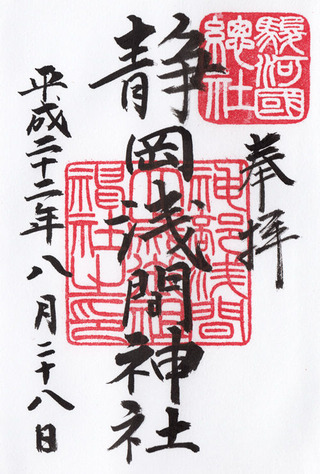 駿河國
總社
奉拝
静岡浅間神社
神部浅間
大歳御祖
神社之印
平成二十二年八月二十八日